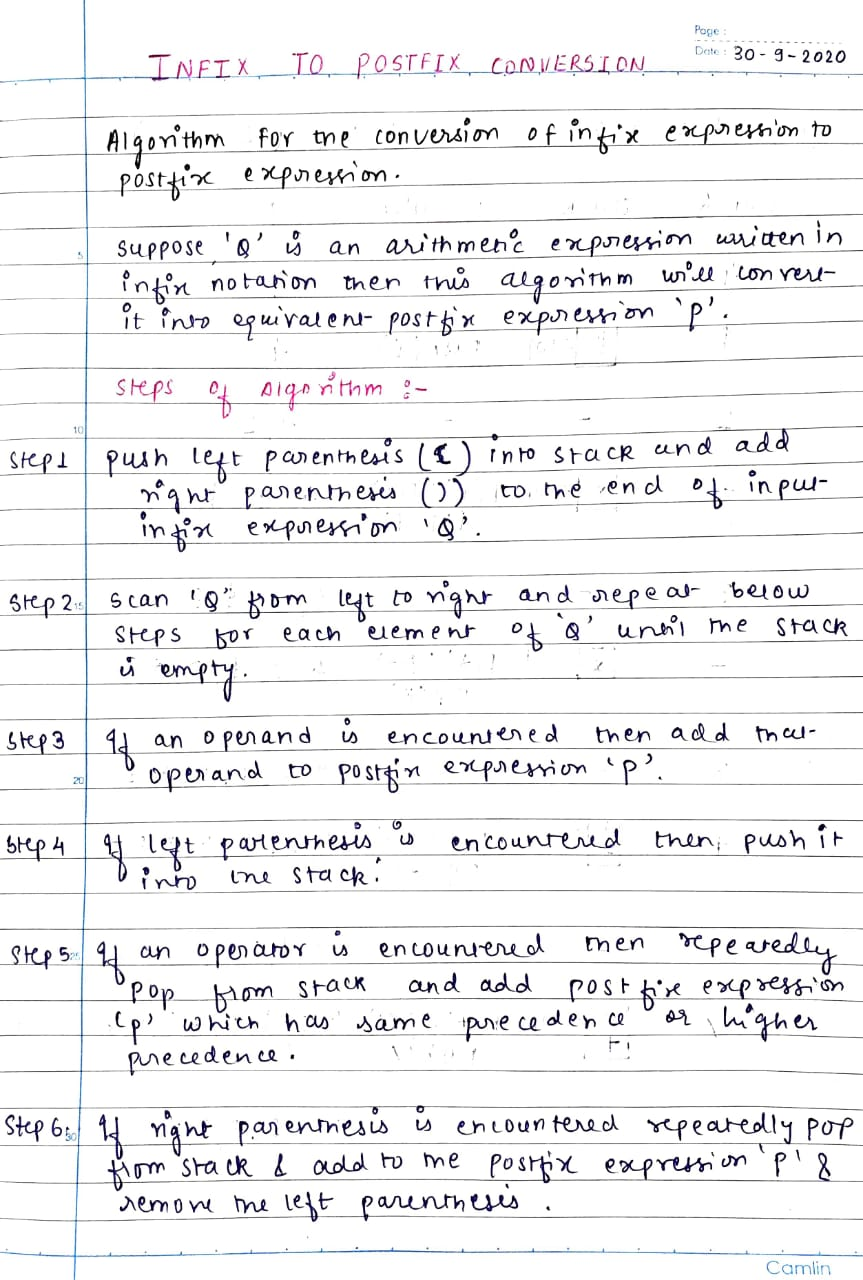 Page :
Date : 30-9-2020
INFIX TO POSTFIX CONVERSION
Algorithm for the conversion of infix expression to
postfix expression.
5
suppose 'Q' is an arithmetic expression written in
infix notation then this algorithm will convert
it into equivalent postfix expression 'p'.
Steps of Algorithm :-
10
Step 1 push left parenthesis (() into stack and add
right parenthesis ()) to the end of input
infix expression 'Q'.
Step 2 15 scan 'Q' from left to right and repeat below
steps for each element of 'Q' until the stack
is empty.
Step 3 If an operand is encountered then add that
20 operand to postfix expression 'p'.
Step 4 If left parenthesis is encountered then, push it
into the stack.
Step 5 25 If an operator is encountered then repeatedly
pop from stack and add postfix expression
'p' which has same precedence or higher
precedence.
Step 6: 30 If right parenthesis is encountered repeatedly pop
from stack & add to the postfix expression 'p' &
remove the left parenthesis.
Camlin